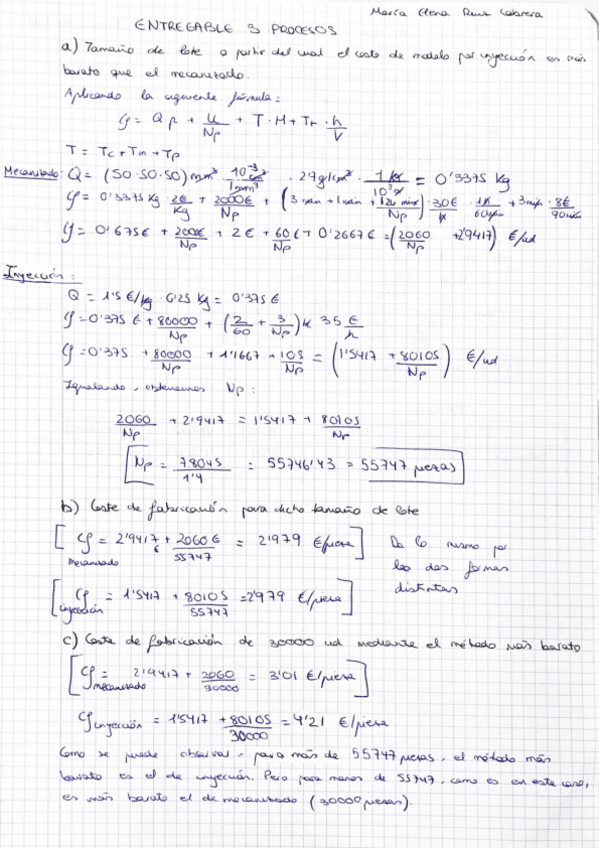 María Elena Ruiz Cabrera
ENTREGABLE 3 PROCESOS
a) Tamaño de lote a partir del cual el coste de modelo por inyección es más
barato que el mecanizado.
Aplicando la siguiente fórmula:
φ = Q p + U/Np + T·M + Tr · h/V
T = Tc + Tm + Tp
Mecanizado: Q = (50·50·50) mm³ · 10⁻³ cm³/1mm³ · 2'7g/cm³ · 1 kg/10³g = 0'3375 kg
φ = 0'3375 kg · 2€/kg + 2000€/Np + (3 min + 1 min + 120 min/Np) · 30€/h · 1h/60min + 3 min · 8€/90min
φ = 0'675€ + 2000€/Np + 2€ + 60€/Np + 0'2667€ = (2060/Np + 2'9417) €/ud
Inyección:
Q = 1'5 €/kg · 0'25 kg = 0'375€
φ = 0'375 € + 80000/Np + (2/60 + 3/Np) h 35 €/h
φ = 0'375 + 80000/Np + 1'1667 + 105/Np = (1'5417 + 80105/Np) €/ud
Igualando, obtenemos Np:
2060/Np + 2'9417 = 1'5417 + 80105/Np
Np = 78045/1'4 = 55746'43 = 55747 piezas
b) Coste de fabricación para dicho tamaño de lote
[φ mecanizado = 2'9417 + 2060 €/55747 = 2'979 €/pieza]
Da lo mismo por
las dos formas
distintas
[φ inyección = 1'5417 + 80105/55747 = 2'979 €/pieza]
c) Coste de fabricación de 30000 ud mediante el método más barato
[φ mecanizado = 2'9417 + 2060/30000 = 3'01 €/pieza]
φ inyección = 1'5417 + 80105/30000 = 4'21 €/pieza
Como se puede observar, para más de 55747 piezas, el método más
barato es el de inyección. Pero para menos de 55747, como es en este caso,
es más barato el de mecanizado (30000 piezas).